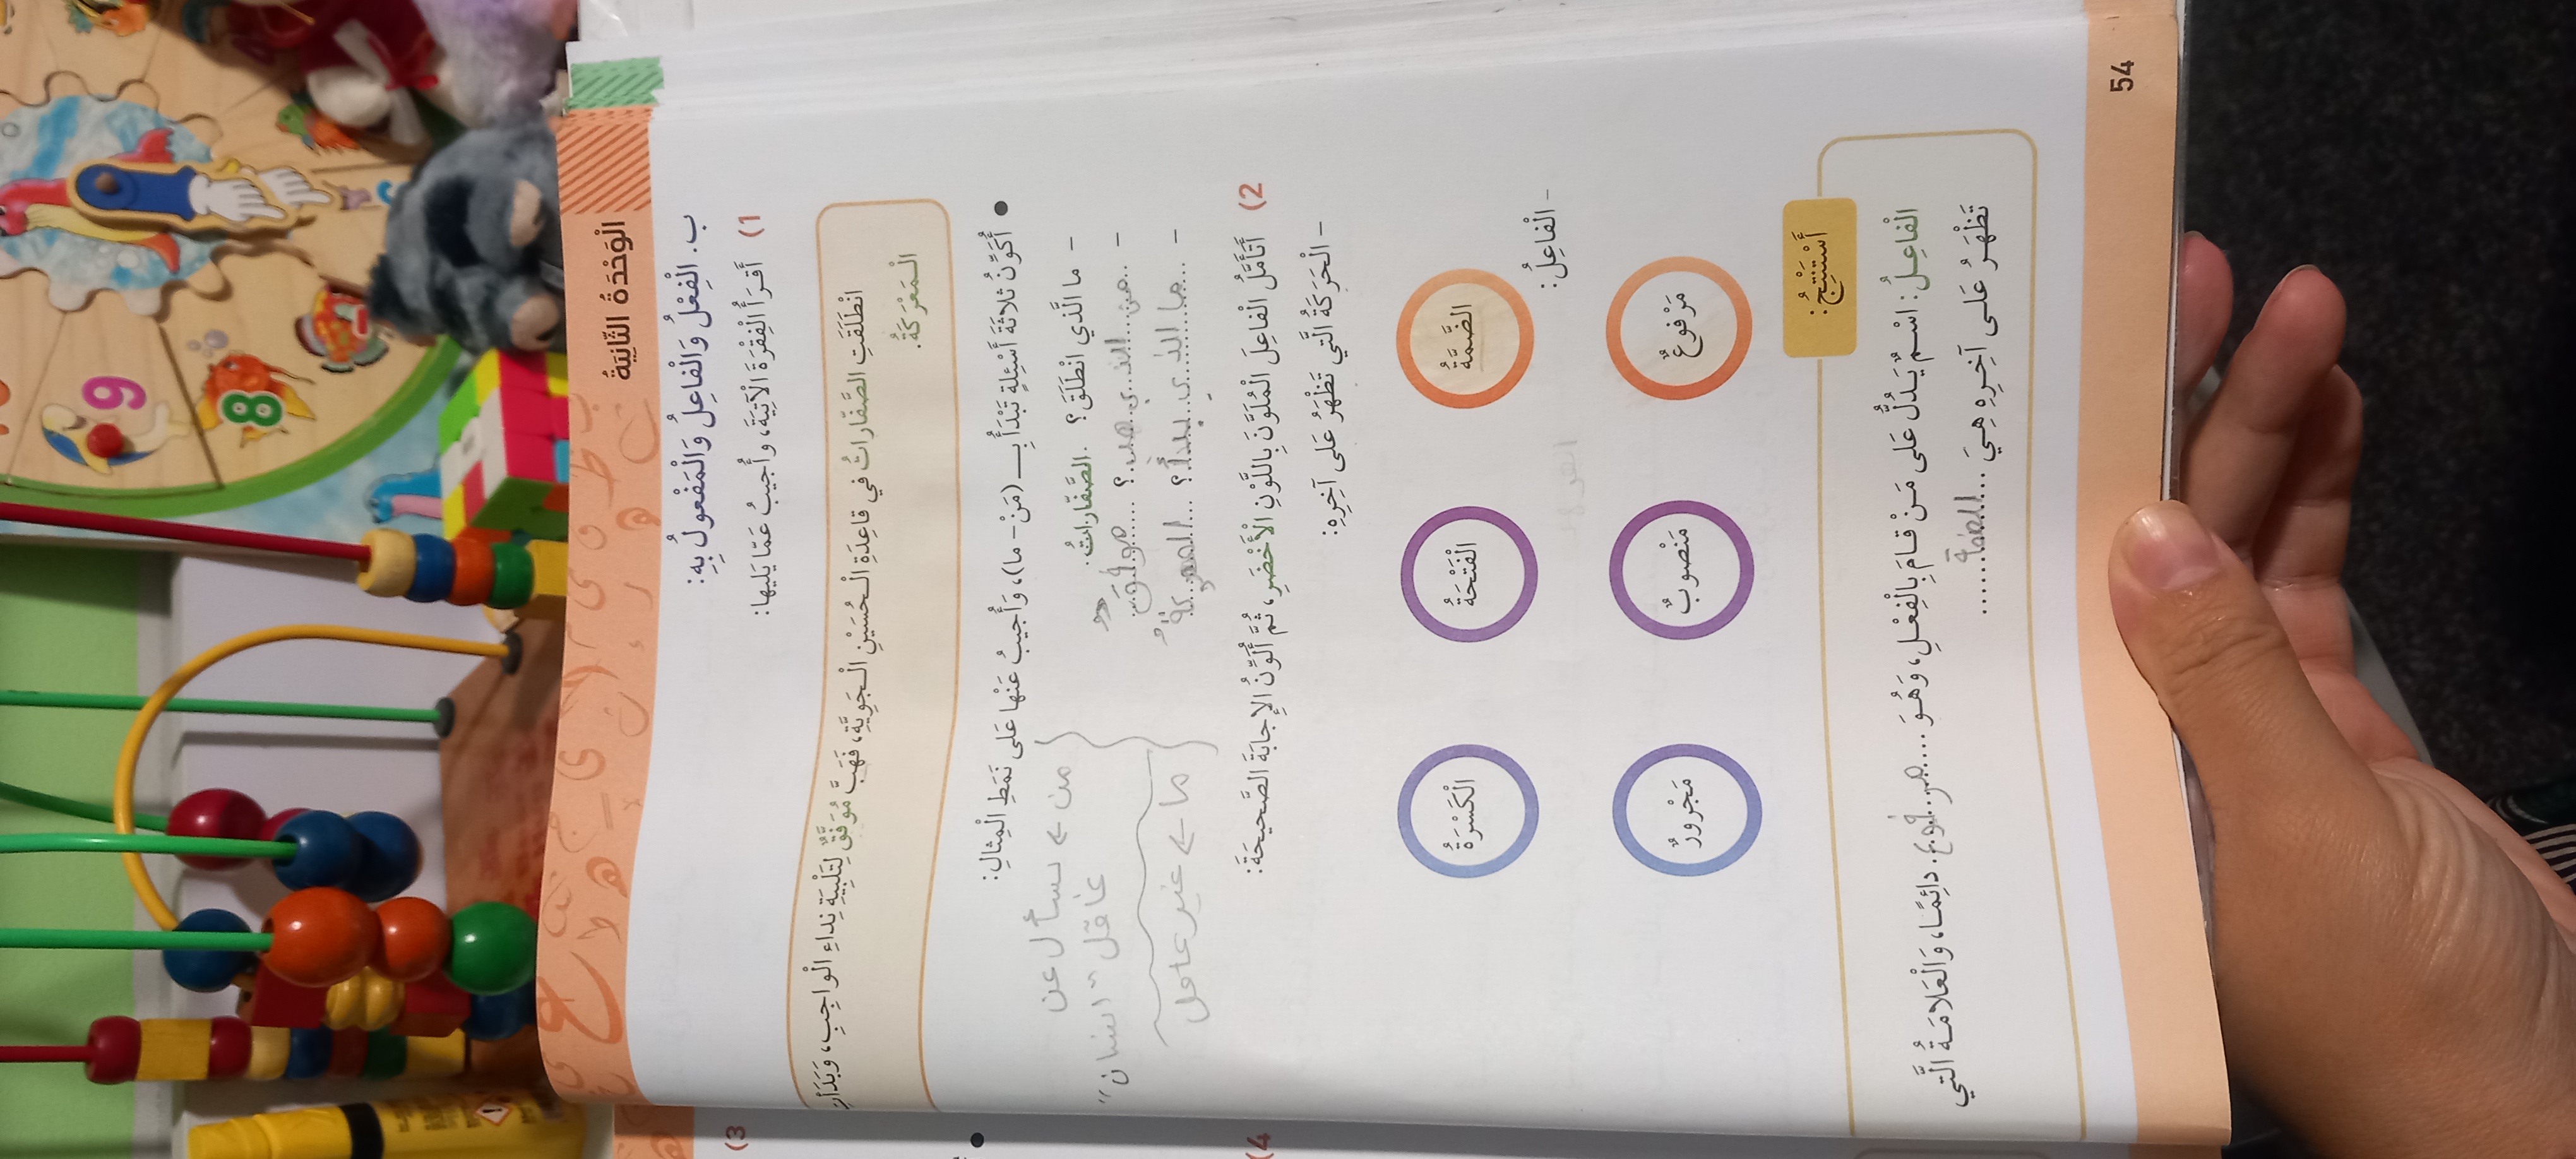 الْوَحْدَةُ الثّانِيَةُ
ب. الْفِعْلُ وَالْفاعِلُ وَالْمَفْعولُ بِهِ:
1) أَقْرَأُ الْفِقْرَةَ الْآتِيَةَ، وَأُجيبُ عَمّا يَليها:
انْطَلَقَتِ الصَّفّاراتُ في قاعِدَةِ الْحُسَيْنِ الْجَوِيَّةِ، فَهَبَّ مُوَفَّقٌ لِتَلْبِيَةِ نِداءِ الْواجِبِ، وَبَدَأَتِ
الْمَعْرَكَةُ.
● أُكَوِّنُ ثَلاثَةَ أَسْئِلَةٍ تَبْدَأُ بِـ (مَنْ - ما)، وَأُجيبُ عَنْها عَلى نَمَطِ الْمِثالِ:
- ما الَّذي انْطَلَقَ؟ الصَّفّاراتُ.
- من الذي هب؟ موفق
- ما الذي بدأ؟ المعركة
من ← نسأل عن
عاقل "انسان"
ما ← غير عاقل
2) أَتَأَمَّلُ الْفاعِلَ الْمُلَوَّنَ بِاللَّوْنِ الْأَخْضَرِ، ثُمَّ أُلَوِّنُ الْإِجابَةَ الصَّحيحَةَ:
- الْحَرَكَةُ الَّتي تَظْهَرُ عَلى آخِرِهِ:
الضَّمَّةُ الْفَتْحَةُ الْكَسْرَةُ
- الْفاعِلُ:
مَرْفوعٌ مَنْصوبٌ مَجْرورٌ
أَسْتَنْتِجُ:
الْفاعِلُ: اسْمٌ يَدُلُّ عَلى مَنْ قامَ بِالْفِعْلِ، وَهُوَ مرفوع دائِمًا، وَالْعَلامَةُ الَّتي
تَظْهَرُ عَلى آخِرِهِ هِيَ الضمة
54
3)
4)
9
8